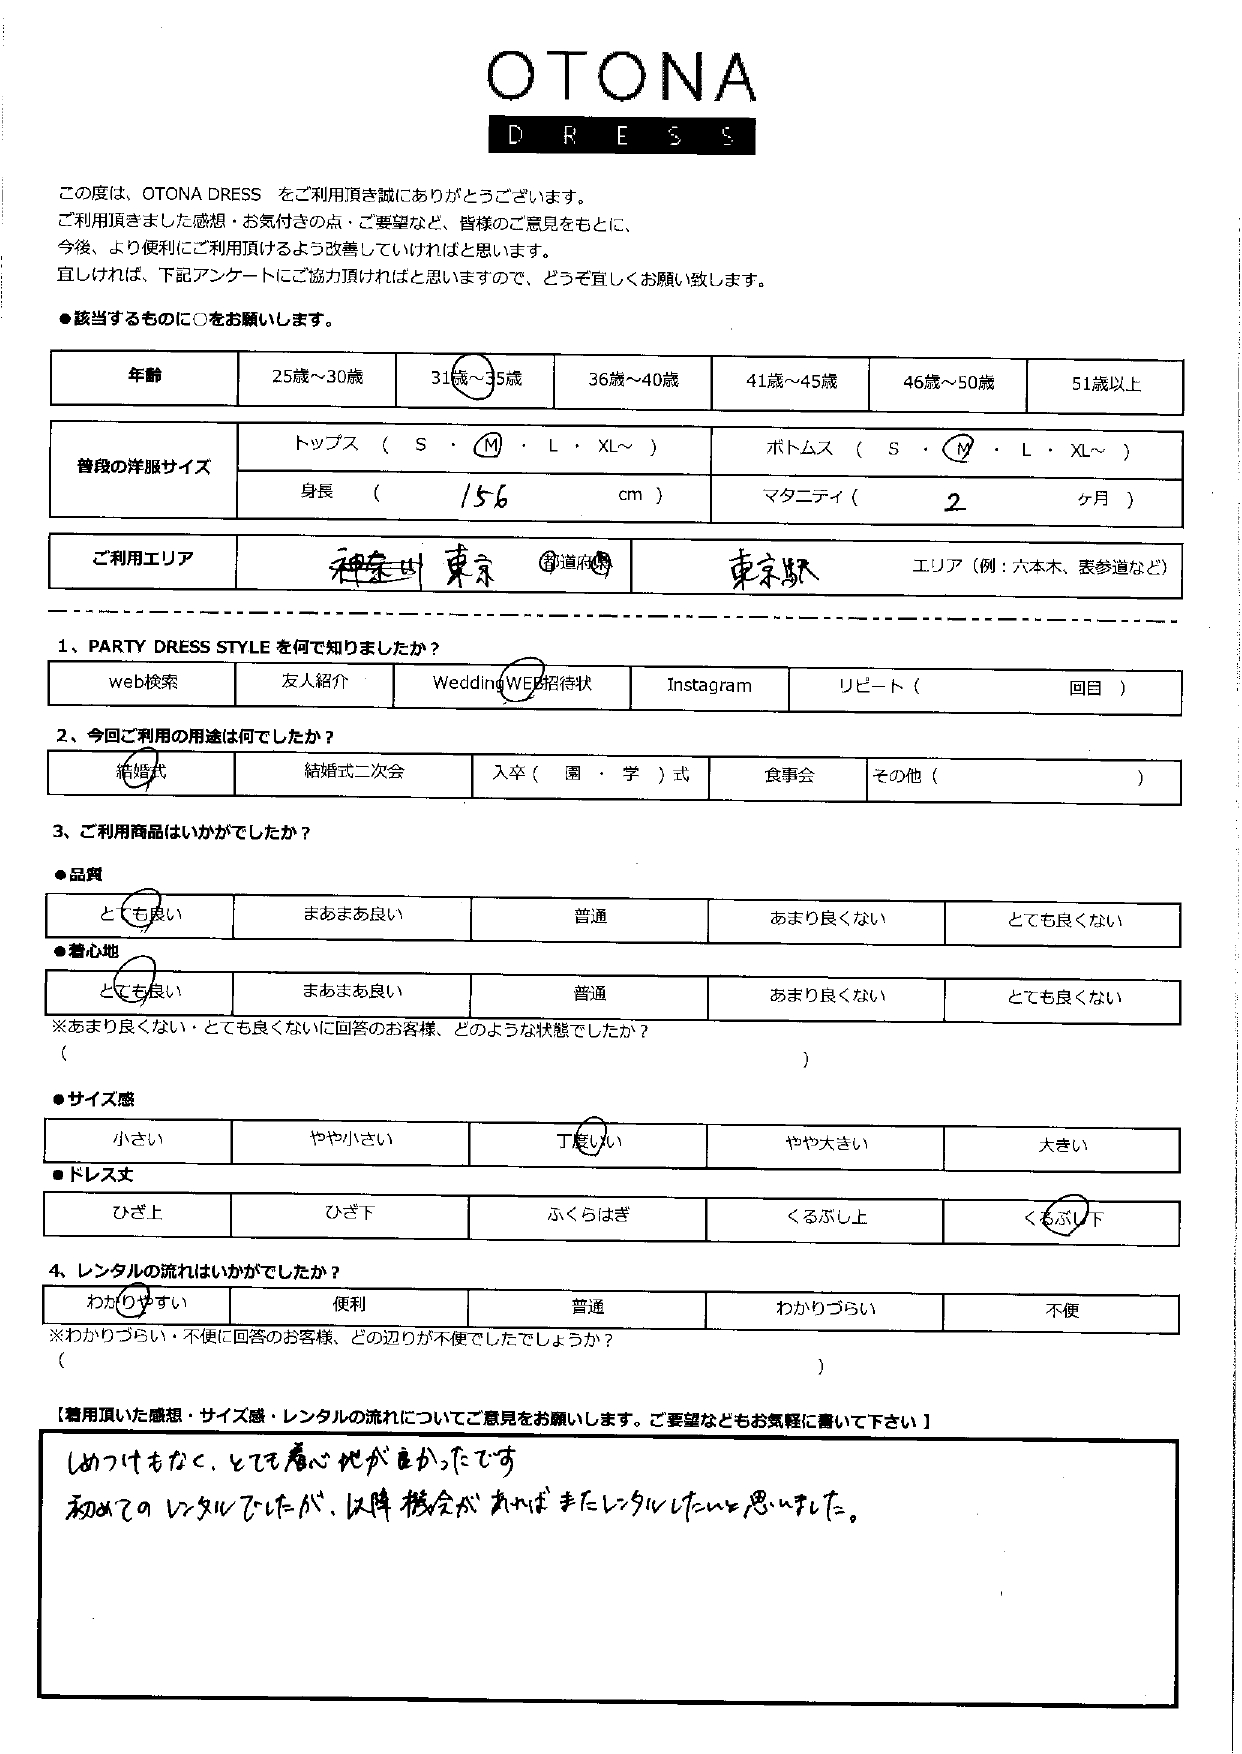 OTONA
DRESS
この度は、OTONA DRESS をご利用頂き誠にありがとうございます。
ご利用頂きました感想・お気付きの点・ご要望など、皆様のご意見をもとに、
今後、より便利にご利用頂けるよう改善していければと思います。
宜しければ、下記アンケートにご協力頂ければと思いますので、どうぞ宜しくお願い致します。
●該当するものに○をお願いします。
年齢 25歳～30歳 31歳～35歳 36歳～40歳 41歳～45歳 46歳～50歳 51歳以上
普段の洋服サイズ トップス ( S ・ M ・ L ・ XL～ ) ボトムス ( S ・ M ・ L ・ XL～ )
身長 ( 156 cm ) マタニティ ( 2 ヶ月 )
ご利用エリア 神奈川 東京 都道府県 東京駅 エリア（例：六本木、表参道など）
1、PARTY DRESS STYLE を何で知りましたか？
web検索 友人紹介 WeddingWEB招待状 Instagram リピート ( 回目 )
2、今回ご利用の用途は何でしたか？
結婚式 結婚式二次会 入卒 ( 園 ・ 学 ) 式 食事会 その他 ( )
3、ご利用商品はいかがでしたか？
●品質
とても良い まあまあ良い 普通 あまり良くない とても良くない
●着心地
とても良い まあまあ良い 普通 あまり良くない とても良くない
※あまり良くない・とても良くないに回答のお客様、どのような状態でしたか？
( )
●サイズ感
小さい やや小さい 丁度いい やや大きい 大きい
●ドレス丈
ひざ上 ひざ下 ふくらはぎ くるぶし上 くるぶし下
4、レンタルの流れはいかがでしたか？
わかりやすい 便利 普通 わかりづらい 不便
※わかりづらい・不便に回答のお客様、どの辺りが不便でしたでしょうか？
( )
【着用頂いた感想・サイズ感・レンタルの流れについてご意見をお願いします。ご要望などもお気軽に書いて下さい】
しめつけもなく、とても着心地が良かったです
初めてのレンタルでしたが、以降機会があればまたレンタルしたいと思いました。